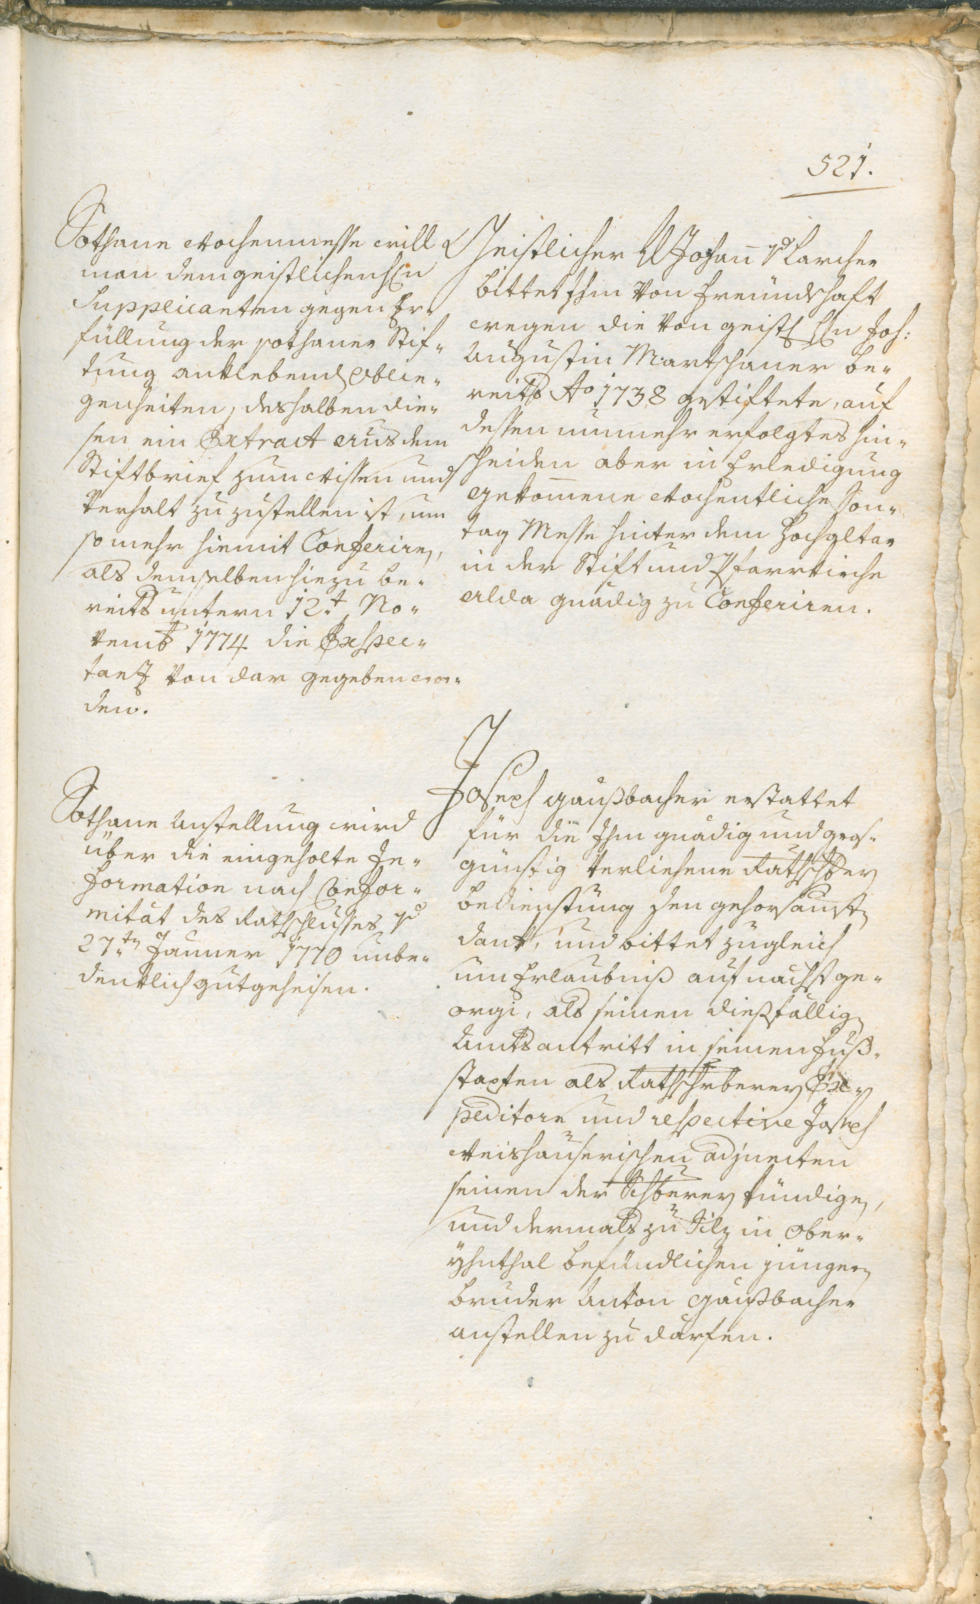 521.
Sothane Wochenmesse will
man dem geistlichen H
Supplicanten gegen Er-
füllung der sothaner Stif-
tung anklebend Oblie-
genheiten, deshalben die-
sen ein Extract aus dem
Stiftbrief zum Wissen und
Verhalt zuzustellen ist, um
so mehr hiemit Conferiren,
als demselben hiezu be-
reits untern 12t No-
vemb 1774 die Expec-
tanz von dar gegeben wor-
den.
Geistlicher Johann Karcher
bittet Ihm von Freundschaft
wegen die von geistl Hn Joh:
Augustin Martschaner be-
reits Ao 1738 gestiftete, auf
dessen nunmehr erfolgtes hin-
scheiden aber in Erledigung
gekommene wochentliche Son-
tag Messe hinter dem Hochaltar
in der Stift und Pfarrkirche
alda gnädig zu Conferiren.
Sothane Anstellung wird
über die eingeholte In-
formation nach Confor-
mität des Rathschlusses
27ten Jenner 1770 unbe-
denklich gutgeheisen.
Joseph gaußbacher erstattet
für die Ihm gnädig und gros-
günstig verliehene Rathschbrey
bedienstung den gehorsamsten
dank, und bittet zugleich
um Erlaubniß auf nächst ge-
orgi, als seinen dießfällig
Amtsantritt in seinen Fuß-
stapfen als Rathschrberey Ex-
peditorn und respective Joseph
Weishauserischen adjuncten
seinen der Schberey kündigen,
und dermals zu Silz in Ober-
yhnthal befindlichen jüngern
bruder Anton gaußbacher
anstellen zu därfen.